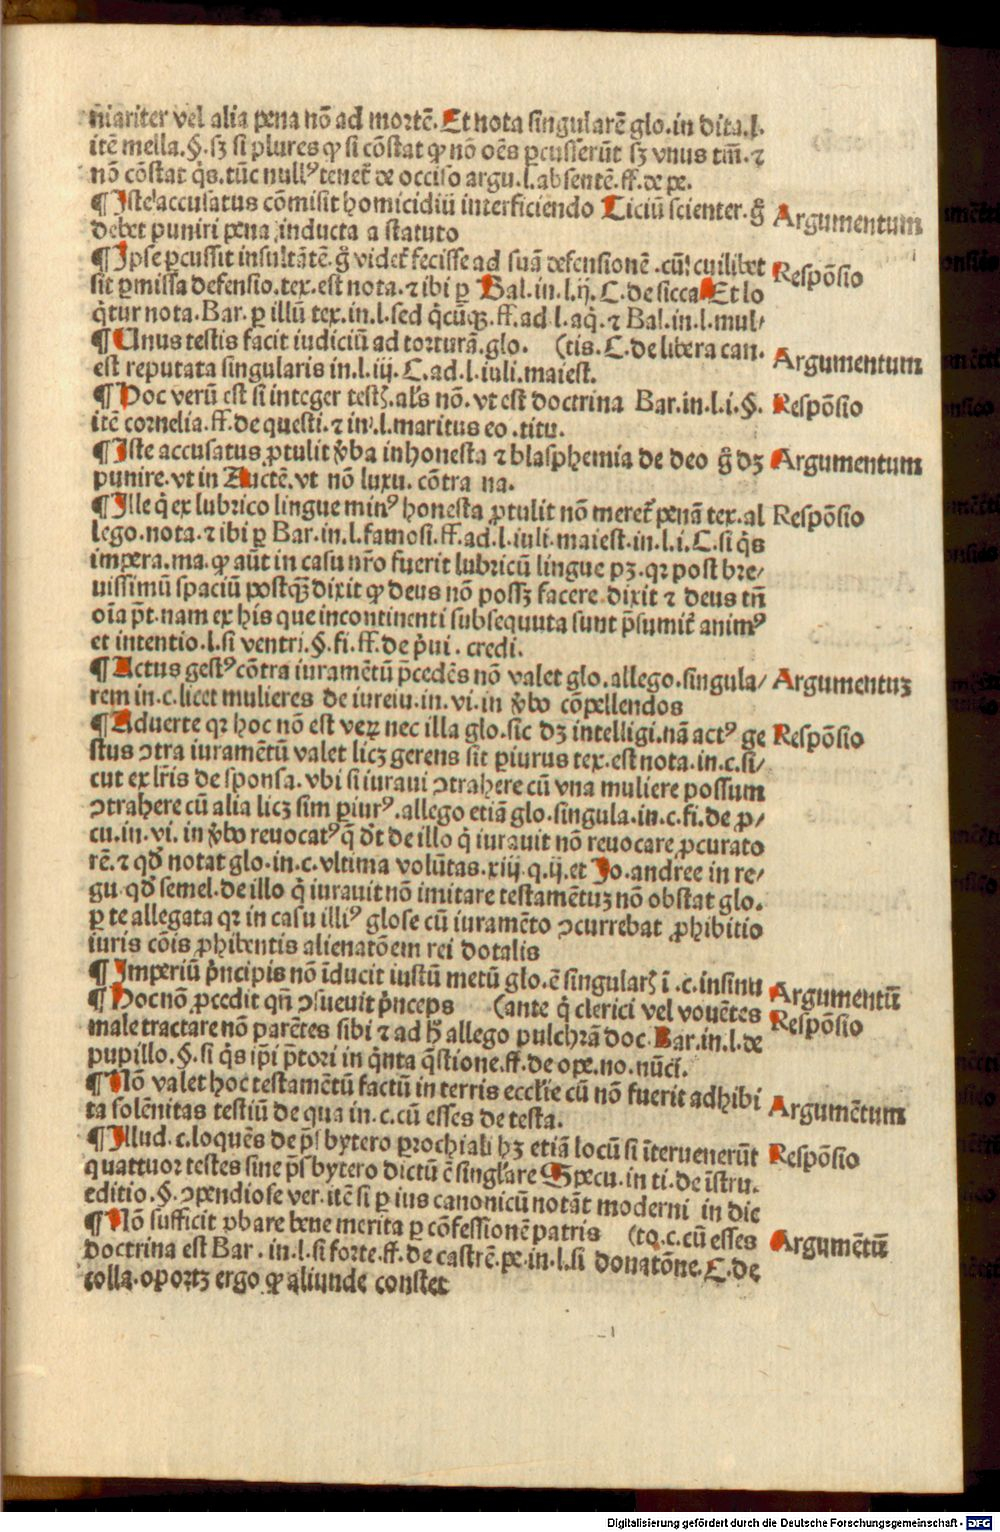 niariter vel alia pena nō ad mortē. Et nota singularē glo. in dita. l.
itē mella. §. sꝫ si plures ꝙ si cōstat ꝙ nō oēs ꝑcusserūt sꝫ vnus tm̄. ⁊
nō cōstat q̄s. tūc nullꝰ tenet̄ de occiso argu. l. absentē. ff. de pe.
¶ Iste accusatus cōmisit homicidiū interficiendo Ticiū scienter. g̊
Argumentum
debet puniri pena inducta a statuto
¶ Ipse ꝑcussit insultātē. g̊ videt̄ fecisse ad suā defensionē. cū cuilibet
Respōsio
sit ꝑmissa defensio. tex. est nota. ⁊ ibi ꝑ Bal. in. l. ij. C. de sicca Et lo
q̄tur nota. Bar. ꝑ illū tex. in. l. sed q̄cūqꝫ. ff. ad. l. aq̄. ⁊ Bal. in. l. mul/
¶ Unus testis facit iudiciū ad torturā. glo. (tis. C. de libera cau.
Argumentum
est reputata singularis in. l. iij. C. ad. l. iuli. maiest.
¶ Hoc verū est si integer testꝭ. al's nō. vt est doctrina Bar. in. l. i. §.
Respōsio
itē cornelia. ff. de questi. ⁊ in. l. maritus eo. titu.
¶ Iste accusatus ꝓtulit v̄ba inhonesta ⁊ blasphemia de deo g̊ dꝫ
Argumentum
punire. vt in Auctē. vt nō luxu. cōtra na.
¶ Ille q̄ ex lubrico lingue minꝰ honesta ꝓtulit nō meret̄ penā tex. al
Respōsio
lego. nota. ⁊ ibi ꝑ Bar. in. l. famosi. ff. ad. l. iuli. maiest. in. l. i. C. si q̄s
impera. ma. ꝙ aūt in casu nr̄o fuerit lubricū lingue pꝫ. qꝛ post bre/
uissimū spaciū postqꝫ dixit ꝙ deus nō possꝫ facere dixit ⁊ deus tn̄
oīa p̄t. nam ex his que incontinenti subsequuta sunt p̄sumit̄ animꝰ
et intentio. l. si ventri. §. fi. ff. de p̄ui. credi.
¶ Actus gestꝰ cōtra iuramētū p̄cedēs nō valet glo. allego. singula/
Argumentuꝫ
rem in. c. licet mulieres de iureiu. in. vi. in v̄bo cōpellendos
¶ Aduerte qꝛ hoc nō est veꝝ nec illa glo. sic dꝫ intelligi. nā actꝰ ge
Respōsio
stus ↄtra iuramētū valet licꝫ gerens sit ꝑiurus tex. est nota. in. c. si/
cut ex lr̄is de sponsa. vbi si iuraui ↄtrahere cū vna muliere possum
ↄtrahere cū alia licꝫ sim ꝑiurꝰ. allego etiā glo. singula. in. c. fi. de ꝓ/
cu. in. vi. in v̄bo reuocatꝰ q̄ dt̄ de illo q̄ iurauit nō reuocare ꝓcurato
rē. ⁊ qd̄ notat glo. in. c. vltima volūtas. xiij. q. ij. et Jo. andree in re/
gu. qd̄ semel. de illo q̄ iurauit nō imitare testamētuꝫ nō obstat glo.
ꝑ te allegata qꝛ in casu illiꝰ glose cū iuramēto ↄcurrebat ꝓhibitio
iuris cōis ꝓhibentis alienatōem rei dotalis
¶ Imperiū p̄ncipis nō īducit iustū metū glo. ē singularꝭ ī. c. insinu
Argumentū
¶ Hoc nō ꝓcedit qn̄ ↄsueuit p̄nceps (ante q̄ clerici vel vouētes
Respōsio
male tractare nō parētes sibi ⁊ ad h̄ allego pulchrā doc. Bar. in. l. de
pupillo. §. si q̄s ip̄i p̄tori in q̄nta q̄stione. ff. de ope. no. nūci.
¶ Nō valet hoc testamētū factū in terris eccl'ie cū nō fuerit adhibi
Argumētum
ta solēnitas testiū de qua in. c. cū esses de testa.
¶ Illud. c. loquēs de p̄sbytero ꝑrochiali hꝫ etiā locū si īteruenerūt
Respōsio
quattuor testes sine p̄sbytero dictū ē singl'are Specu. in ti. de īstru.
editio. §. ↄpendiose ver. itē si ꝑ ius canonicū notāt moderni in die
¶ Nō sufficit ꝓbare bene merita ꝑ cōfessionē patris (to. c. cū esses
Argumētū
doctrina est Bar. in. l. si forte. ff. de castrē. pe. in. l. si donatōne. C. de
colla. oportꝫ ergo ꝙ aliunde constet
Digitalisierung gefördert durch die Deutsche Forschungsgemeinschaft - DFG